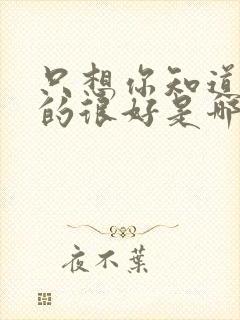 只想你知道
的很好是那
夜不葉